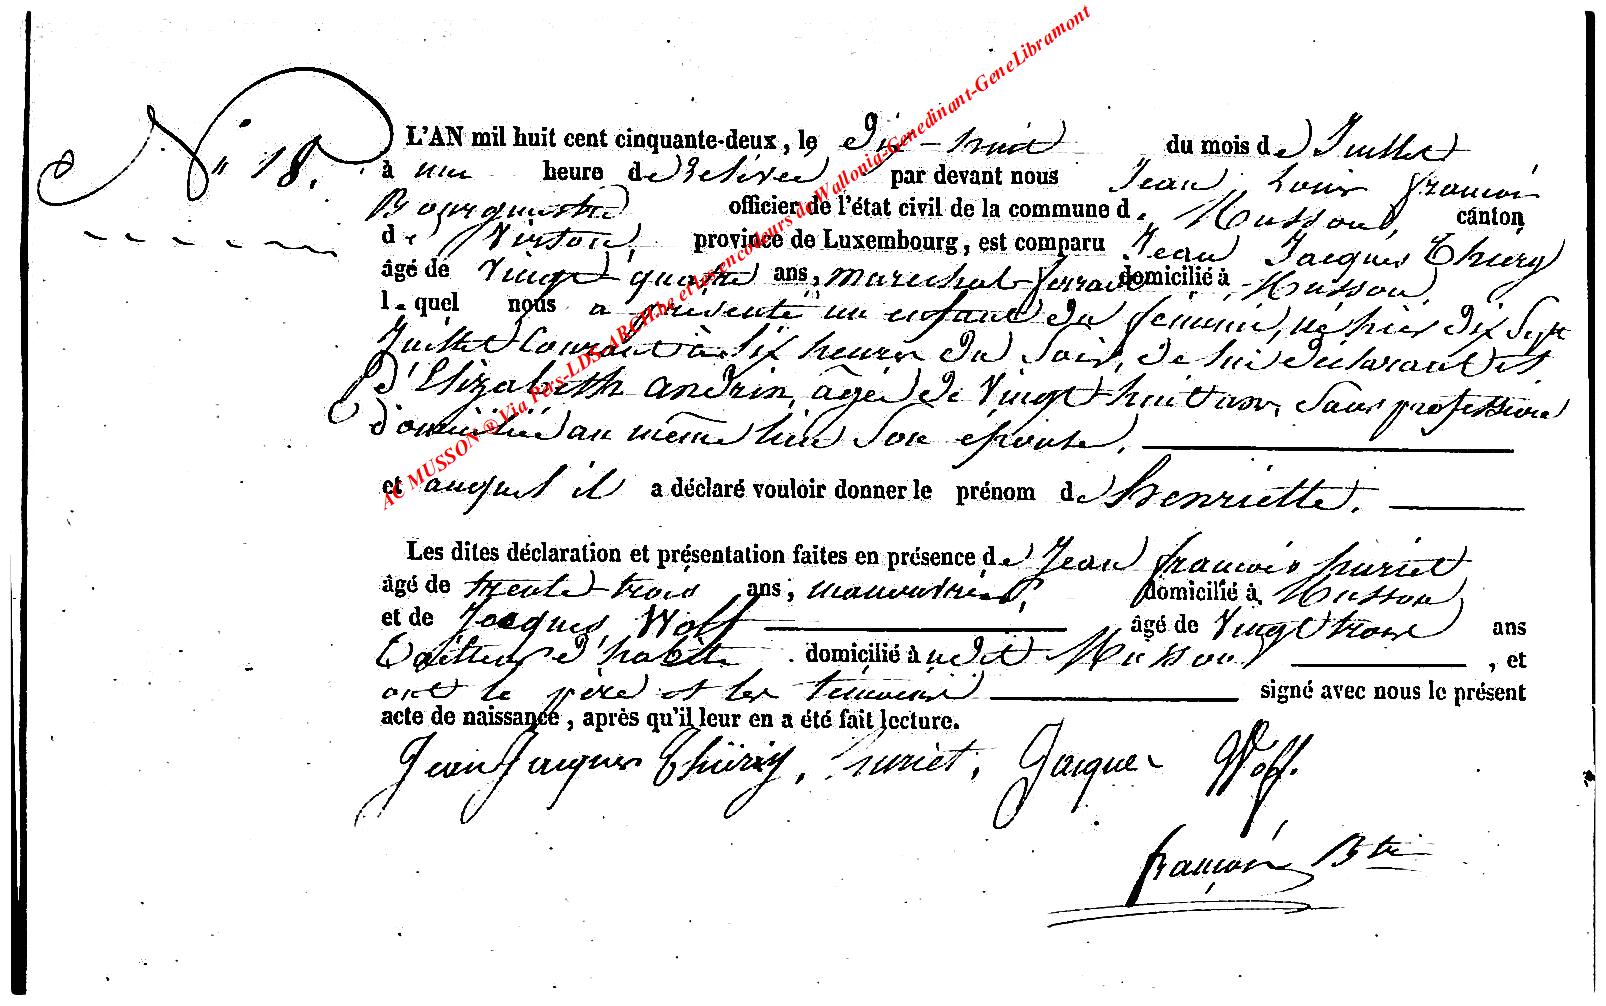 N° 18.
L'AN mil huit cent cinquante-deux, le Dix-huit du mois de Juillet
à une heure de relévée par devant nous Jean Louis françois
Bourguestre officier de l'état civil de la commune de Musson, canton
de Virton, province de Luxembourg, est comparu Jean Jacques Thiry
âgé de Vingt quatre ans, marechal ferrant domicilié à Musson
lequel nous a présenté un enfant du féminin, né hier dix Sept
Juillet Courant à Six heures du Soir, de lui déclarant et
d'Elizabeth andrin, âgée de Vingt huit ans, Sans profession
domicilié au même lieu Son épouse.
et auquel il a déclaré vouloir donner le prénom de henriette.
Les dites déclaration et présentation faites en présence de Jean françois huriet
âgé de trente-trois ans, manouvrier, domicilié à Musson
et de Jacques Wolf âgé de Vingt trois ans
tailleur d'habits domicilié audit Musson, et
ont le père et les témoins signé avec nous le présent
acte de naissance, après qu'il leur en a été fait lecture.
Jean Jacques Thiry, huriet, Jacques Wolf.
françois Btre
AC MUSSON @ Via Pers-LDS-ARCH.be et les encodeurs de Wallonia-Genedinant-GeneLibramont